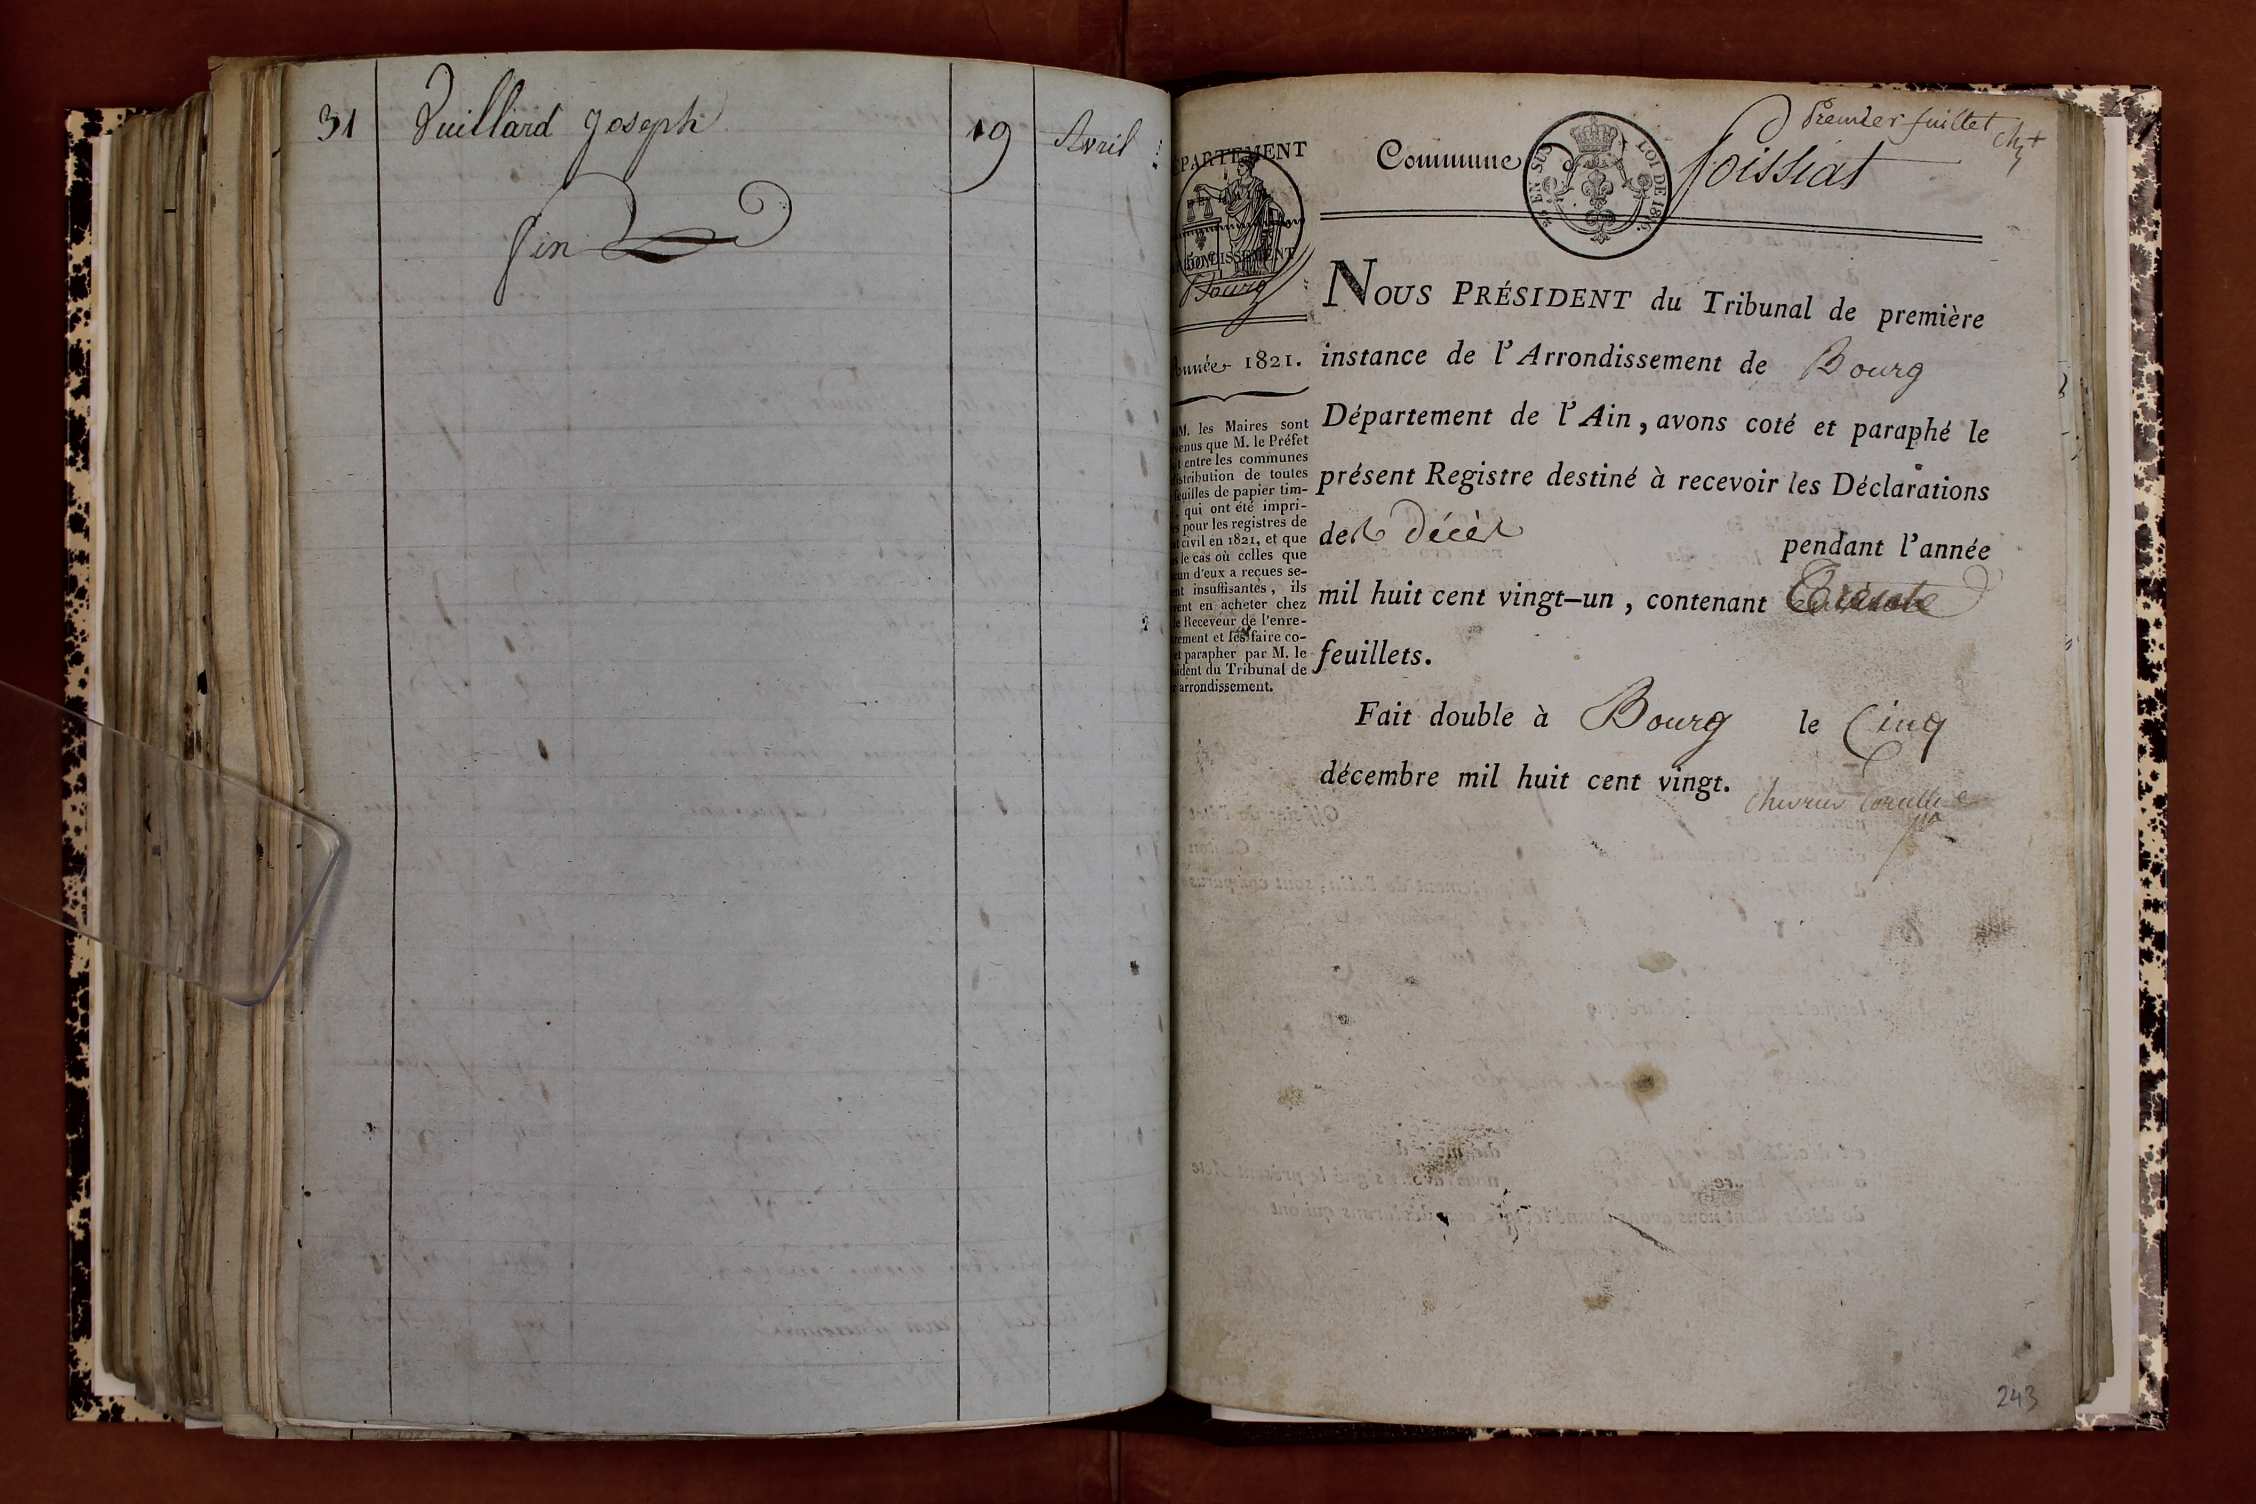 31 Vuillard Joseph 19 Avril
fin
Premier feuillet
Commune Foissiat
EN SUS LOI DE 1816.
DÉPARTEMENT
ARRONDISSEMENT
Bourg
Année 1821.
MM. les Maires sont
venus que M. le Préfet
t entre les communes
istribution de toutes
feuilles de papier tim-
, qui ont été impri-
s pour les registres de
t civil en 1821, et que
s le cas où celles que
cun d'eux a reçues se-
nt insuffisantes, ils
vent en acheter chez
e Receveur de l'enre-
rement et les faire co-
et parapher par M. le
sident du Tribunal de
r arrondissement.
NOUS PRÉSIDENT du Tribunal de première
instance de l'Arrondissement de Bourg
Département de l'Ain, avons coté et paraphé le
présent Registre destiné à recevoir les Déclarations
des décès pendant l'année
mil huit cent vingt-un, contenant Trente
feuillets.
Fait double à Bourg le Cinq
décembre mil huit cent vingt.
243